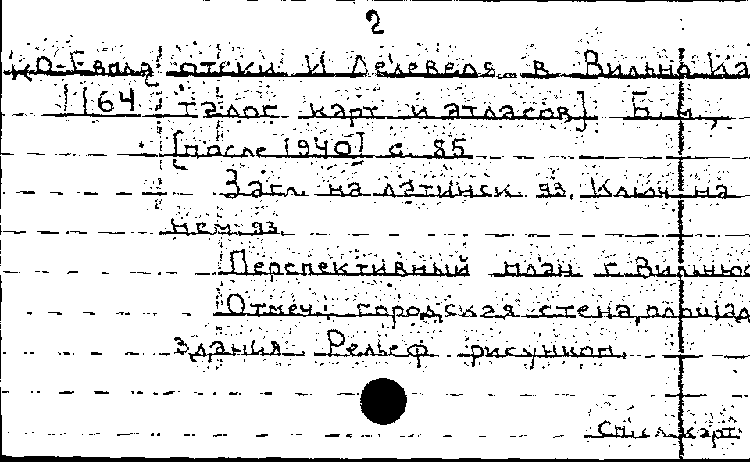 2
Ко-Евала отеки И Лелевеля в Вильно Ка
1164 талог карт и атласов]. Б. м.,
[после 1940] с. 85
Загл. на латинск. яз. Ключ на
нем. яз.
Перспективный план г. Вильнюс
Отмеч.: городская стена, площад
здания. Рельеф рисунком.
карт